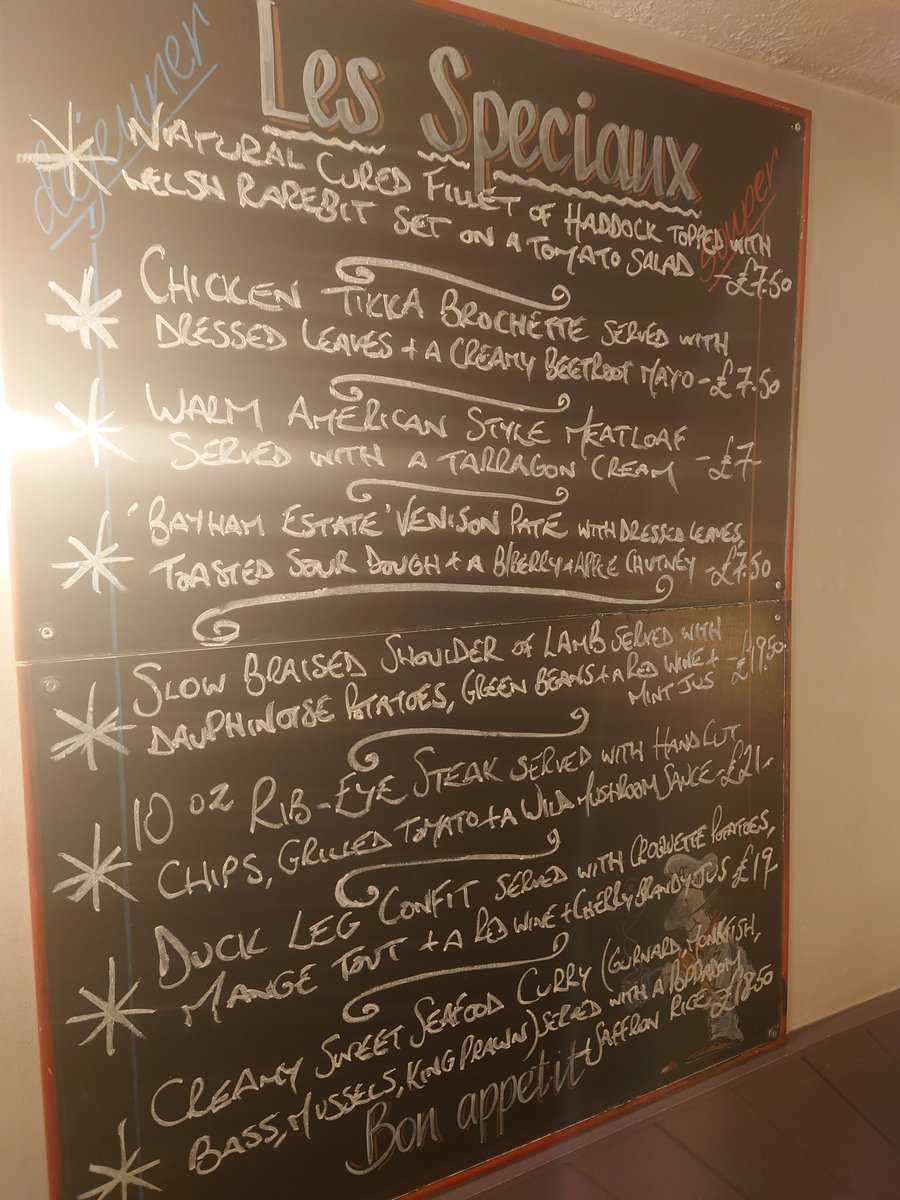 Les Speciaux
déjeuner
souper
NATURAL CURED FILLET OF HADDOCK TOPPED WITH
WELSH RAREBIT SET ON A TOMATO SALAD -£7.50
CHICKEN TIKKA BROCHETTE SERVED WITH
DRESSED LEAVES + A CREAMY BEETROOT MAYO -£7.50
WARM AMERICAN STYLE MEATLOAF
SERVED WITH A TARRAGON CREAM -£7-
'BAYHAM ESTATE' VENISON PATÉ WITH DRESSED LEAVES,
TOASTED SOUR DOUGH + A B/BERRY + APPLE CHUTNEY -£7.50
SLOW BRAISED SHOULDER OF LAMB SERVED WITH
DAUPHINOISE POTATOES, GREEN BEANS + A RED WINE + -£19.50
MINT JUS
10 OZ RIB-EYE STEAK SERVED WITH HAND CUT
CHIPS, GRILLED TOMATO + A WILD MUSHROOM SAUCE -£21-
DUCK LEG CONFIT SERVED WITH CROQUETTE POTATOES,
MANGE TOUT + A RED WINE + CHERRY BRANDY JUS £19-
CREAMY SWEET SEAFOOD CURRY (GURNARD, MONKFISH,
BASS, MUSSELS, KING PRAWN) SERVED WITH A POPPADOM
+ SAFFRON RICE £18.50
Bon appetit